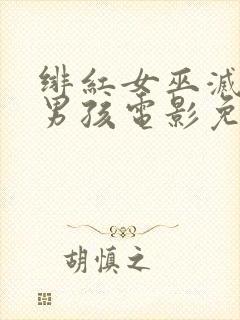 绯红女巫滅
男孩電影免
胡慎之